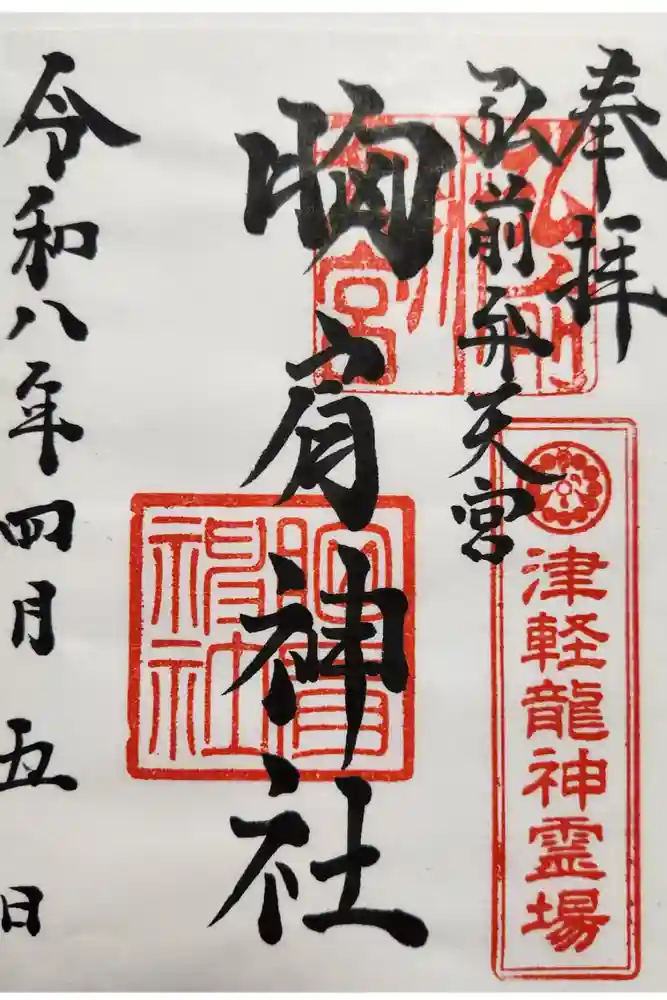 奉拝
弘前弁天宮
胸肩神社
令和八年四月五日
津軽龍神霊場
胸肩神社